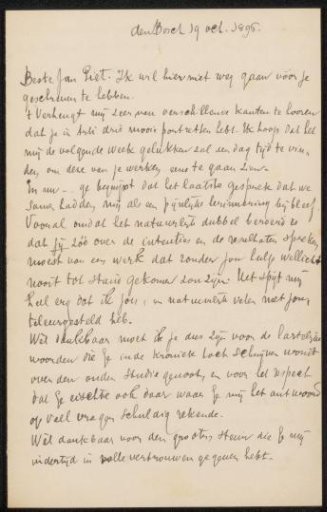 den Bosch 19 oct. 1895.
Beste Jan Piet. Ik wil hier niet weg gaan vóór je
geschreven te hebben.
't Verheugt mij zeer van verschillende kanten te hooren
dat je drie mooie portretten hebt. Ik hoop dat het
mij de volgende week gelukken zal een dag tijd te vin-
den, om deze van je werken eens te gaan zien.
In uw je begrijpt dat het laatste gesprek dat we
samen hadden, mij als een pijnlijke herinnering bij bleef
Vooral omdat het natuurlijk dubbel beroerd is
dat jij zóó over de intenties en de resultaten spreken
moest van een werk dat zonder jou hulp wellicht
nooit tot stand gekomen zou zijn. Het spijt mij
heel erg dat ik jou, en natuurlijk velen met jou,
teleurgesteld heb.
Wel dankbaar moet ik je dus zijn voor de hartelijke
woorden die je in de Kroniek toch schrijven wondt
over den ouden studie genoot, en voor het respect
dat je eischte ook daar waar je mij het antwoord
op veel vragen schuldig rekende.
Wel dankbaar voor den grooten steun die je mij
indertijd in volle vertrouwen gegeven hebt.